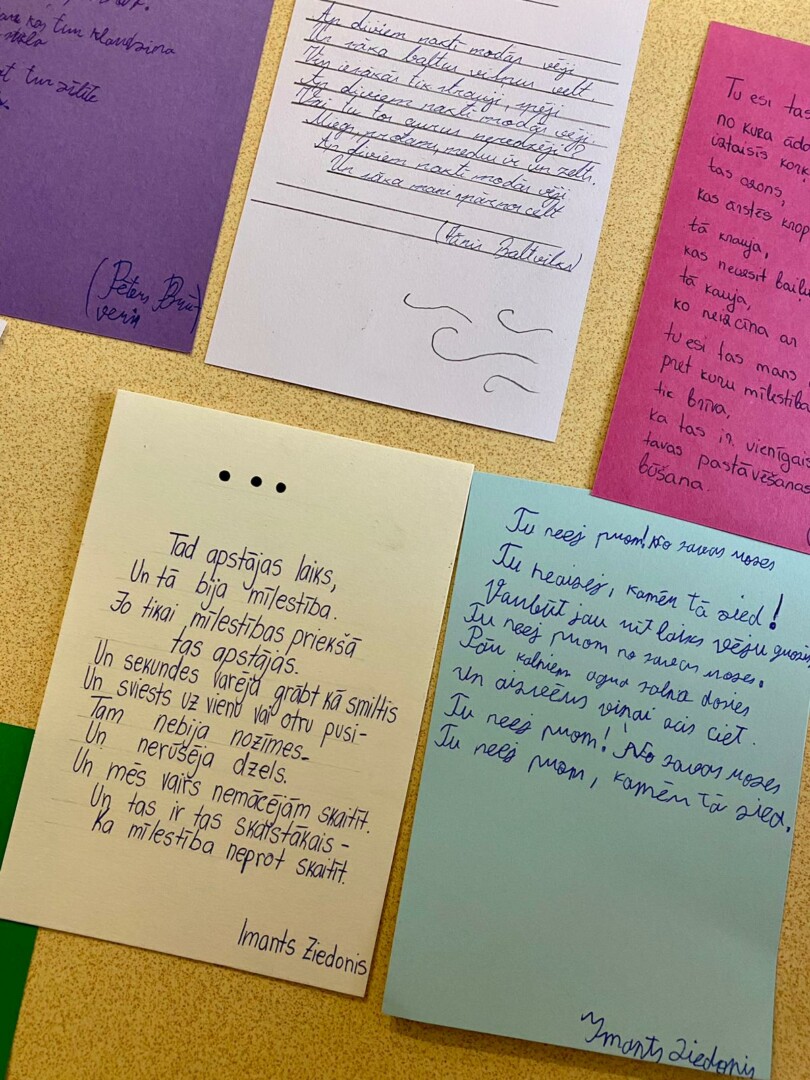 kas tur klaudzina
tur zīlīte
(Pēters Brū-
veris)
Ar diviem naktī modās vēji
Un sāka baltus velt.
Viņ iesākās tik strauji, spēji
Ar diviem naktī modās vēji.
Vai tu tos gaurus neredzēji?
Miegs, protams, medus ir un zelts.
Ar diviem naktī modās vēji
Un sāka mani spārnos celt
(Jānis Baltvilks)
Tu esi tas
no kura
iztaisīs
tas ozons,
kas ārstēs
tā krauja,
kas neuzsit
tā kauja,
ko neizcīna ar
tu esi tas mans
pret kuru mīlestība
tik brīva,
ka tas ir vienīgais
tavas pastāvēšanas
būšana.
...
Tad apstājas laiks,
Un tā bija mīlestība.
Jo tikai mīlestības priekšā
tas apstājās.
Un sekundes varēja grābt kā smiltis
Un sviests uz vienu vai otru pusi-
Tam nebija nozīmes-
Un nerūsēja dzelzs.
Un mēs vairs nemācējām skaitīt.
Un tas ir tas skaistākais -
Ka mīlestība neprot skaitīt.
Imants Ziedonis
Tu neej prom! No savas rozes
Tu neaizej, kamēr tā zied!
Varbūt jau rīt laiks vēju
Tu neej prom no savas rozes.
Pār kalniem agra salna dosies
un aizvērus viņai acis ciet.
Tu neej prom! No savas rozes
Tu neej prom, kamēr tā zied.
Imants Ziedonis